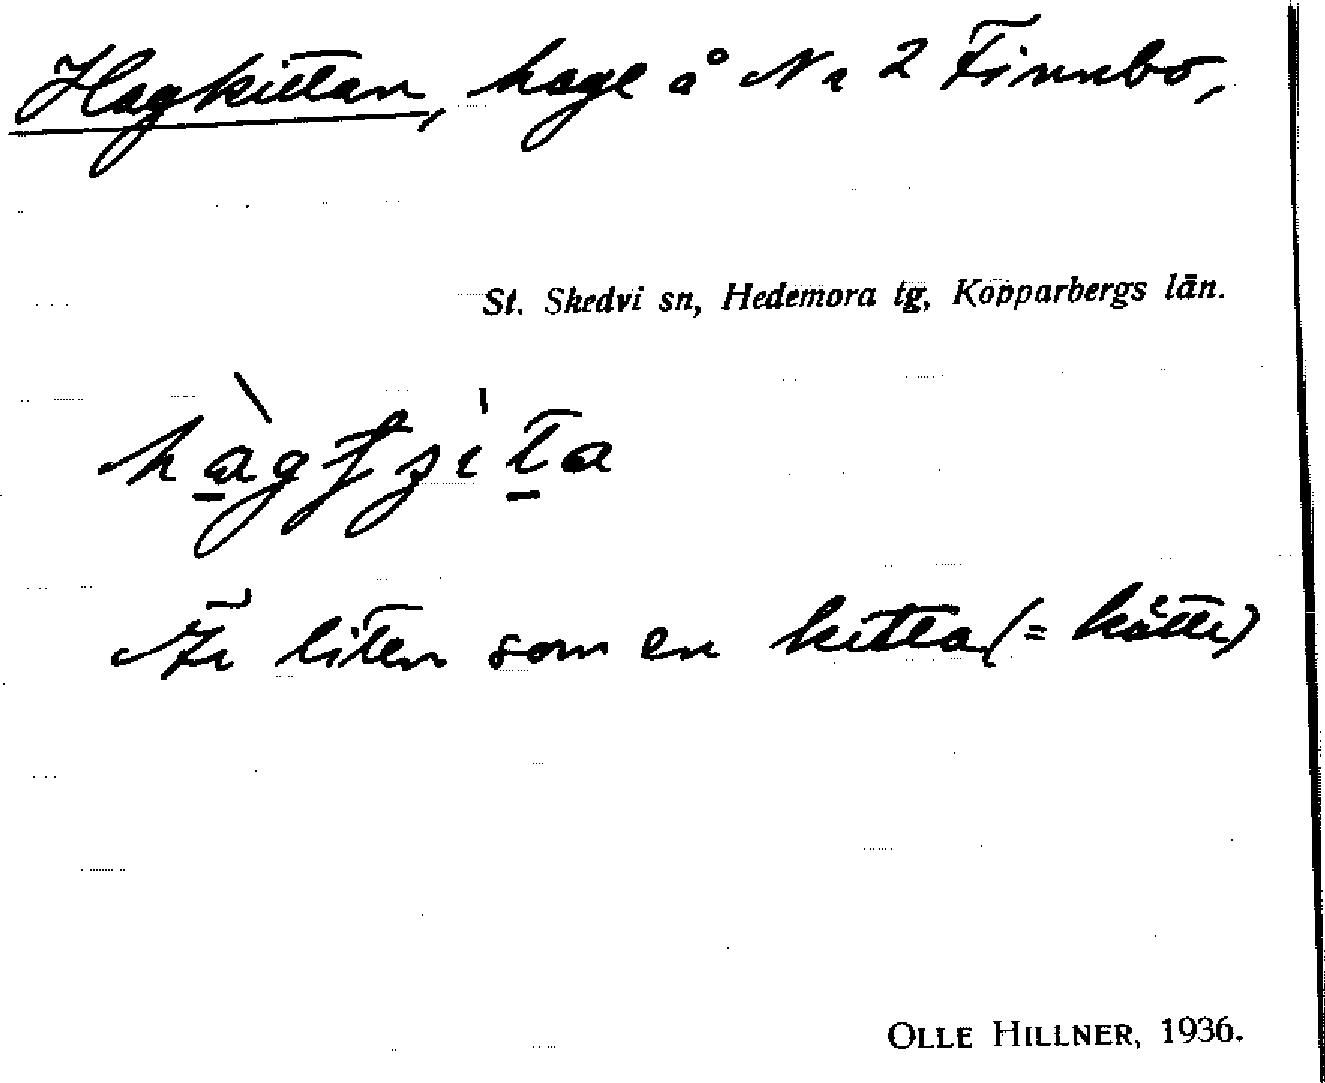 Hagkittan, hage å Nr 2 Finnbo,
St. Skedvi sn, Hedemora tg, Kopparbergs län.
Är liten som en kitta (= kätte)
OLLE HILLNER, 1936.